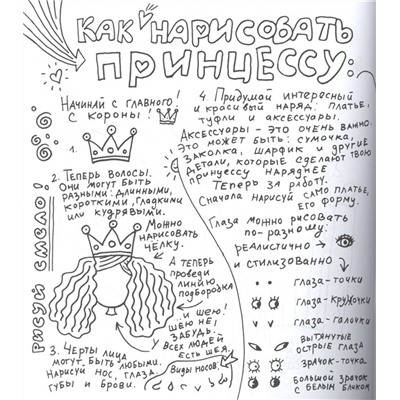 КАК НАРИСОВАТЬ
ПРИНЦЕССУ:
Начинай с главного!
с короны!
1.
2. Теперь волосы.
Они могут быть
разными: длинными,
короткими, гладкими
или кудрявыми.
Можно
нарисовать
чёлку.
А теперь
проведи
линию
подбородка
и шею!
шею не
забудь.
У всех людей
есть шея.
3. Черты лица
могут быть любыми.
Нарисуй нос, глаза,
губы и брови.
Виды носов:
Рисуй смело!
4. Придумай интересный
и красивый наряд: платье,
туфли и аксессуары.
Аксессуары – это очень важно.
Это может быть: сумочка,
заколка, шарфик и другие
детали, которые сделают твою
принцессу наряднее
Теперь за работу.
Сначала нарисуй само платье,
его форму.
Глаза можно рисовать
по-разному:
реалистично
и стилизованно
глаза-точки
глаза-кружочки
глаза-галочки
вытянутые
острые глаза
зрачок-точка
большой зрачок
с белым бликом